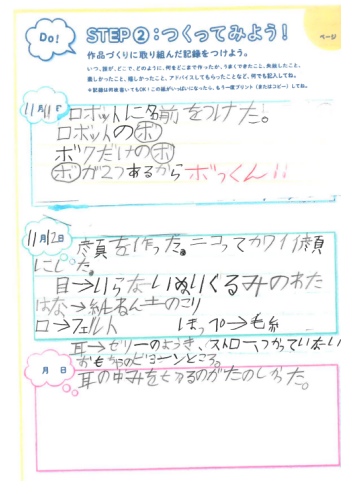 Do!
STEP②:つくってみよう!
ページ
作品づくりに取り組んだ記録をつけよう。
いつ、誰が、どこで、どのように、何をどこまで作ったか、うまくできたこと、失敗したこと、
楽しかったこと、嬉しかったこと、アドバイスしてもらったことなど、何でも記入してね。
＊記録は何枚書いてもOK!この紙がいっぱいになったら、もう一度プリント(またはコピー)してね。
11月11日
ロボットに名前をつけた。
ロボットのボ
ボクだけのボ
ボが2つあるからボっくん!!
11月12日
顔を作った。ニコってカワイイ顔
にした。
目→いらないぬいぐるみのわた
はな→紙ねん土ののこり
口→フェルト ほっぺ→毛糸
耳→ゼリーのようき、ストロー、つかっていない
おもちゃのビヨーンところ。
月 日
耳の中みを
のがたのしかった。